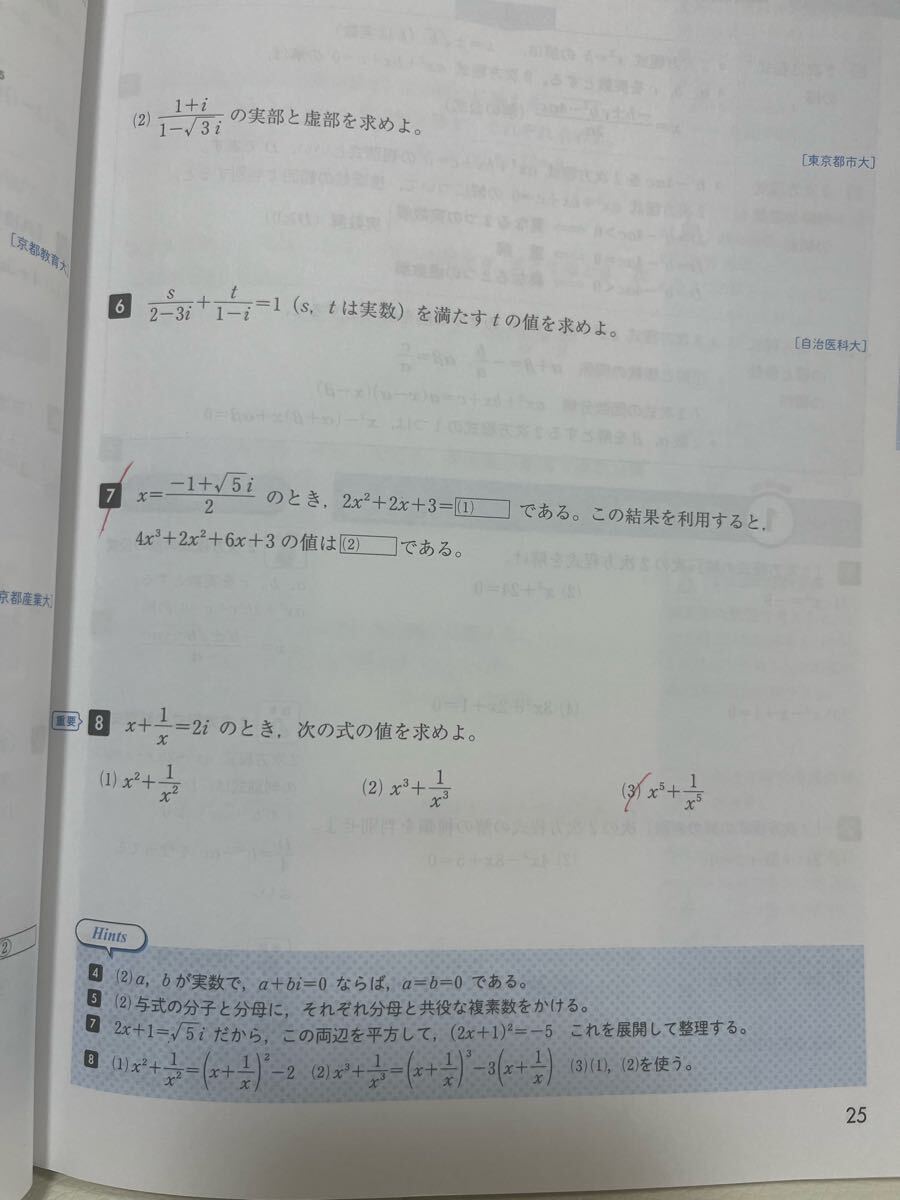 (2) \frac{1+i}{1-\sqrt{3}i} の実部と虚部を求めよ。
[東京都市大]
[京都教育大]
6 \frac{s}{2-3i}+\frac{t}{1-i}=1 (s, t は実数) を満たす t の値を求めよ。
[自治医科大]
7 x=\frac{-1+\sqrt{5}i}{2} のとき, 2x²+2x+3=(1) である。この結果を利用すると,
4x³+2x²+6x+3 の値は(2)である。
京都産業大]
重要 8 x+\frac{1}{x}=2i のとき, 次の式の値を求めよ。
(1) x²+\frac{1}{x²} (2) x³+\frac{1}{x³} (3) x⁵+\frac{1}{x⁵}
Hints
4 (2) a, b が実数で, a+bi=0 ならば, a=b=0 である。
5 (2) 与式の分子と分母に, それぞれ分母と共役な複素数をかける。
7 2x+1=\sqrt{5}i だから, この両辺を平方して, (2x+1)²=-5 これを展開して整理する。
8 (1) x²+\frac{1}{x²}=(x+\frac{1}{x})²-2 (2) x³+\frac{1}{x³}=(x+\frac{1}{x})³-3(x+\frac{1}{x}) (3)(1), (2)を使う。
25